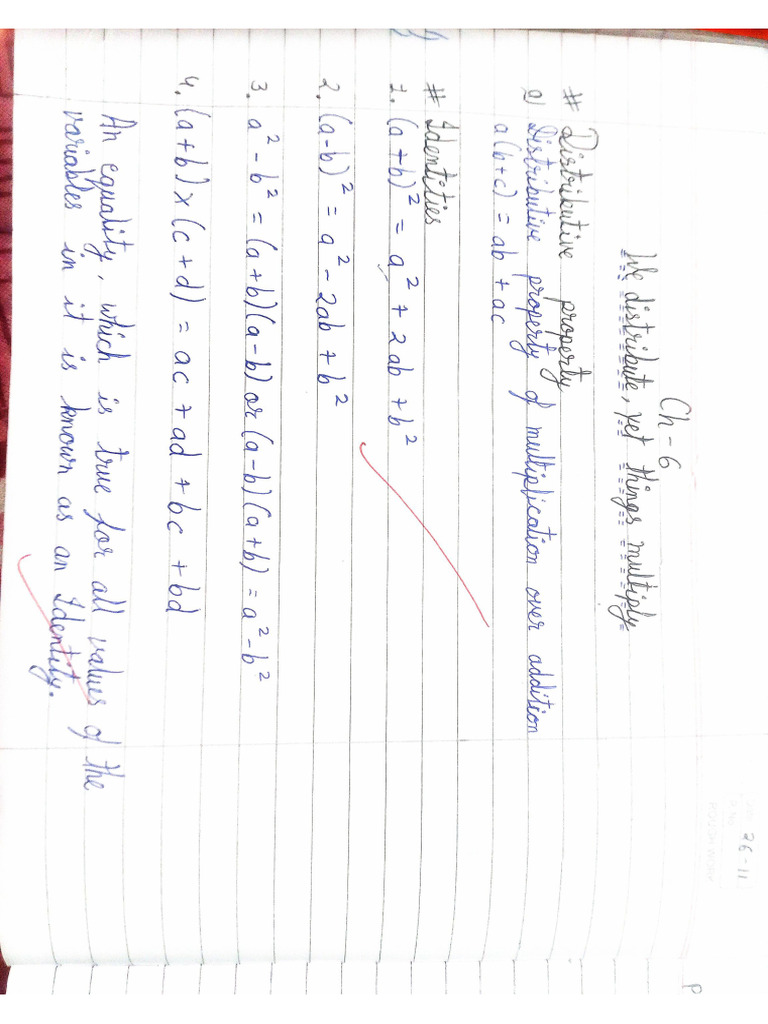 26-11
Ch-6
We distribute, yet things multiply
# Distributive property
Distributive property of multiplication over addition
a(b+c) = ab + ac
# Identities
1. (a+b)² = a² + 2ab + b²
2. (a-b)² = a² - 2ab + b²
3. a² - b² = (a+b)(a-b) or (a-b)(a+b) = a² - b²
4. (a+b) × (c+d) = ac + ad + bc + bd
An equality, which is true for all values of the
variables in it is known as an Identity.